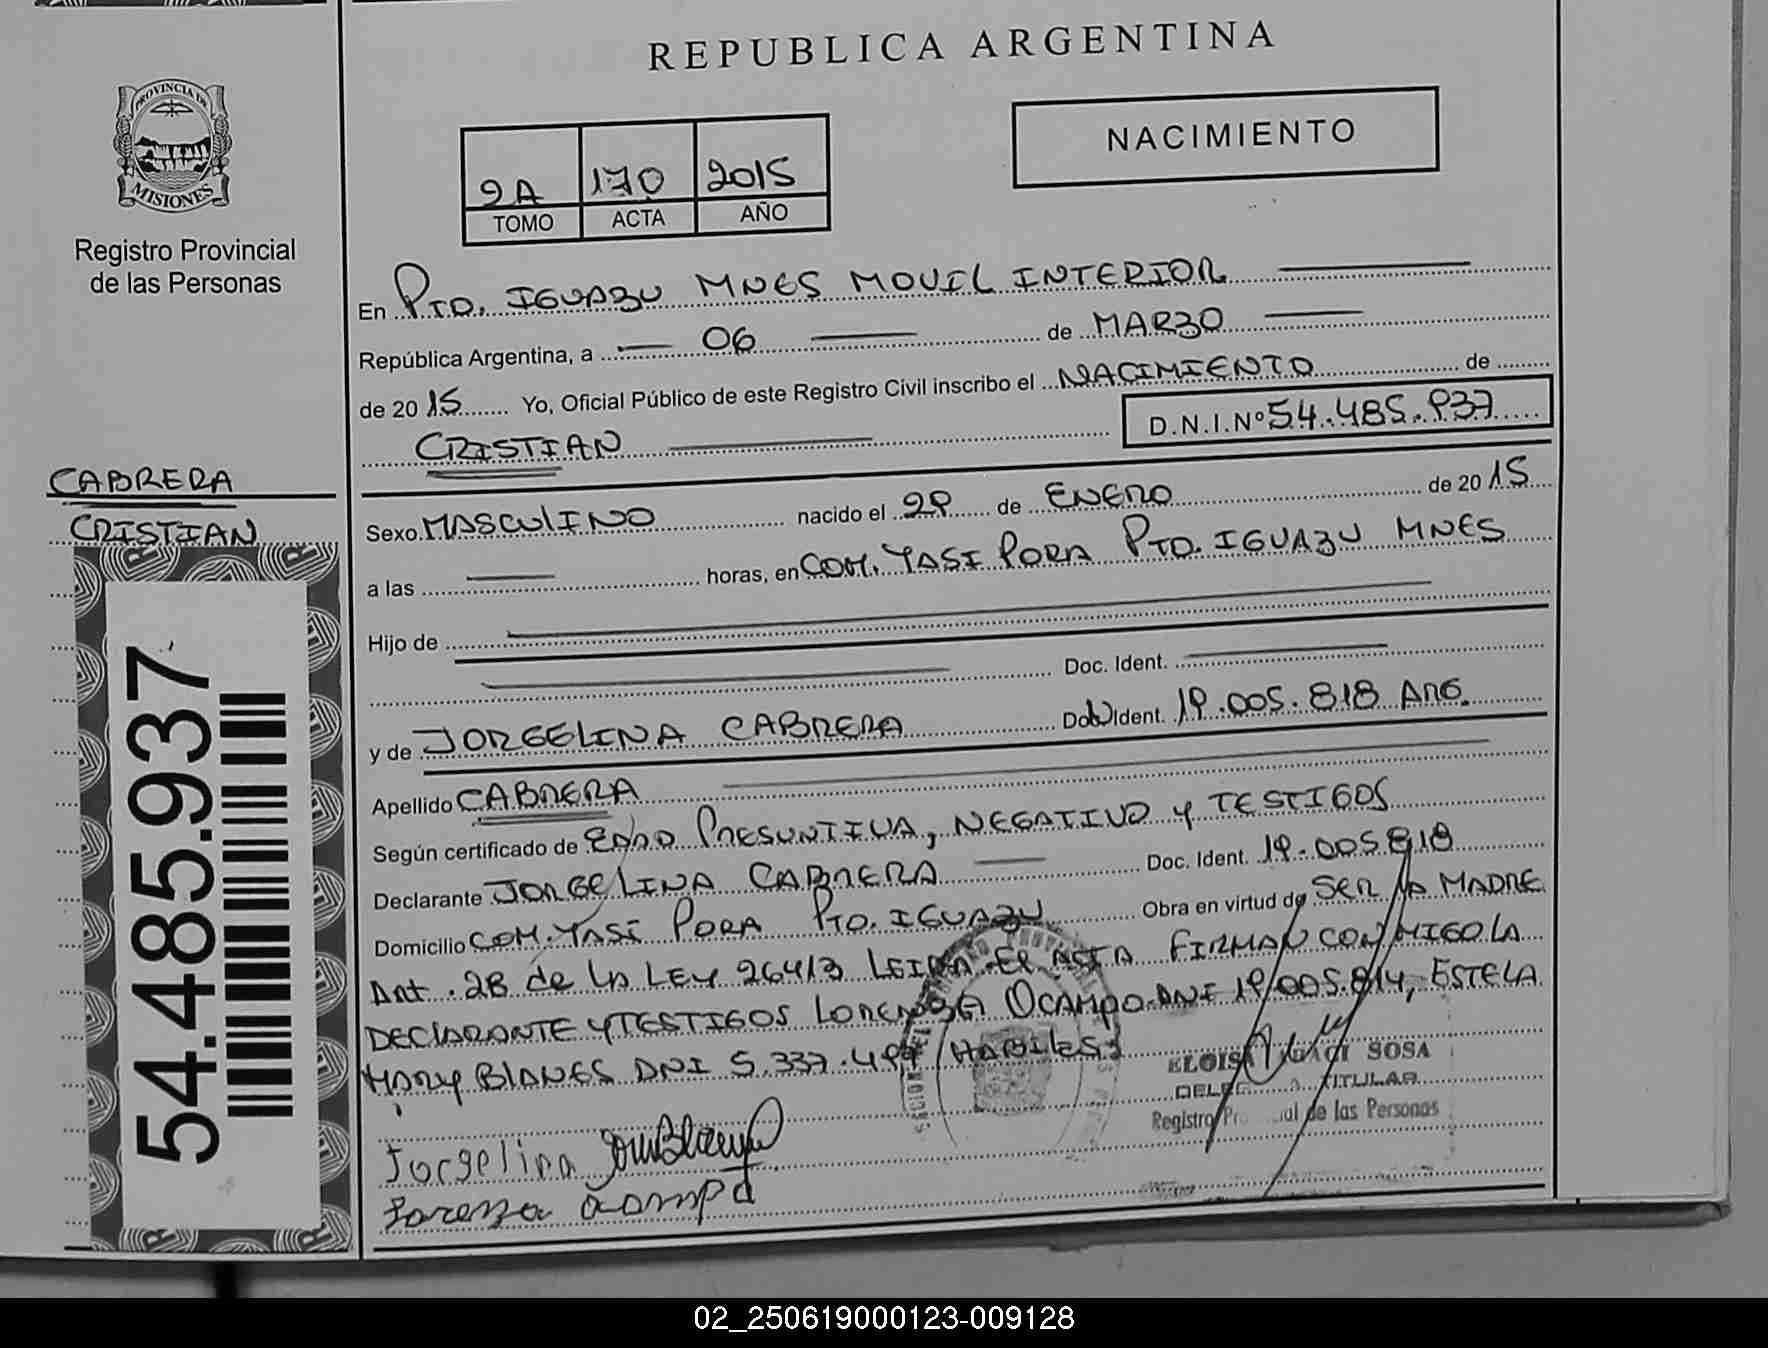 REPUBLICA ARGENTINA
PROVINCIA DE
MISIONES
Registro Provincial
de las Personas
NACIMIENTO
9A 170 2015
TOMO ACTA AÑO
En PTO. IGUAZU MNES MOVIL INTERIOR
República Argentina, a 06 de MARZO
de 2015 Yo, Oficial Público de este Registro Civil inscribo el NACIMIENTO de
CRISTIAN D.N.I.Nº 54.485.937
CABRERA
CRISTIAN
54.485.937
Sexo MASCULINO nacido el 29 de ENERO de 2015
a las horas, en COM. YASI PORA PTO. IGUAZU MNES
Hijo de
Doc. Ident.
y de JORGELINA CABRERA Ident. 19.005.818 ARG.
Apellido CABRERA
Según certificado de EDAD PRESUNTIVA, NEGATIVO Y TESTIGOS
Declarante JORGELINA CABRERA Doc. Ident. 19.005.818
Domicilio COM. YASI PORA PTO. IGUAZU Obra en virtud de SER LA MADRE
Art. 28 de LA LEY 26413 LEIDA EL ACTA FIRMAN CONMIGO LA
DECLARANTE Y TESTIGOS LORENZA OCAMPO DNI 19.005.814, ESTELA
MARY BLANES DNI 5.337. HABILES
ELOISA SOSA
TITULAR
Registro de las Personas
Jorgelina
Lorenza Ocampo
02_250619000123-009128